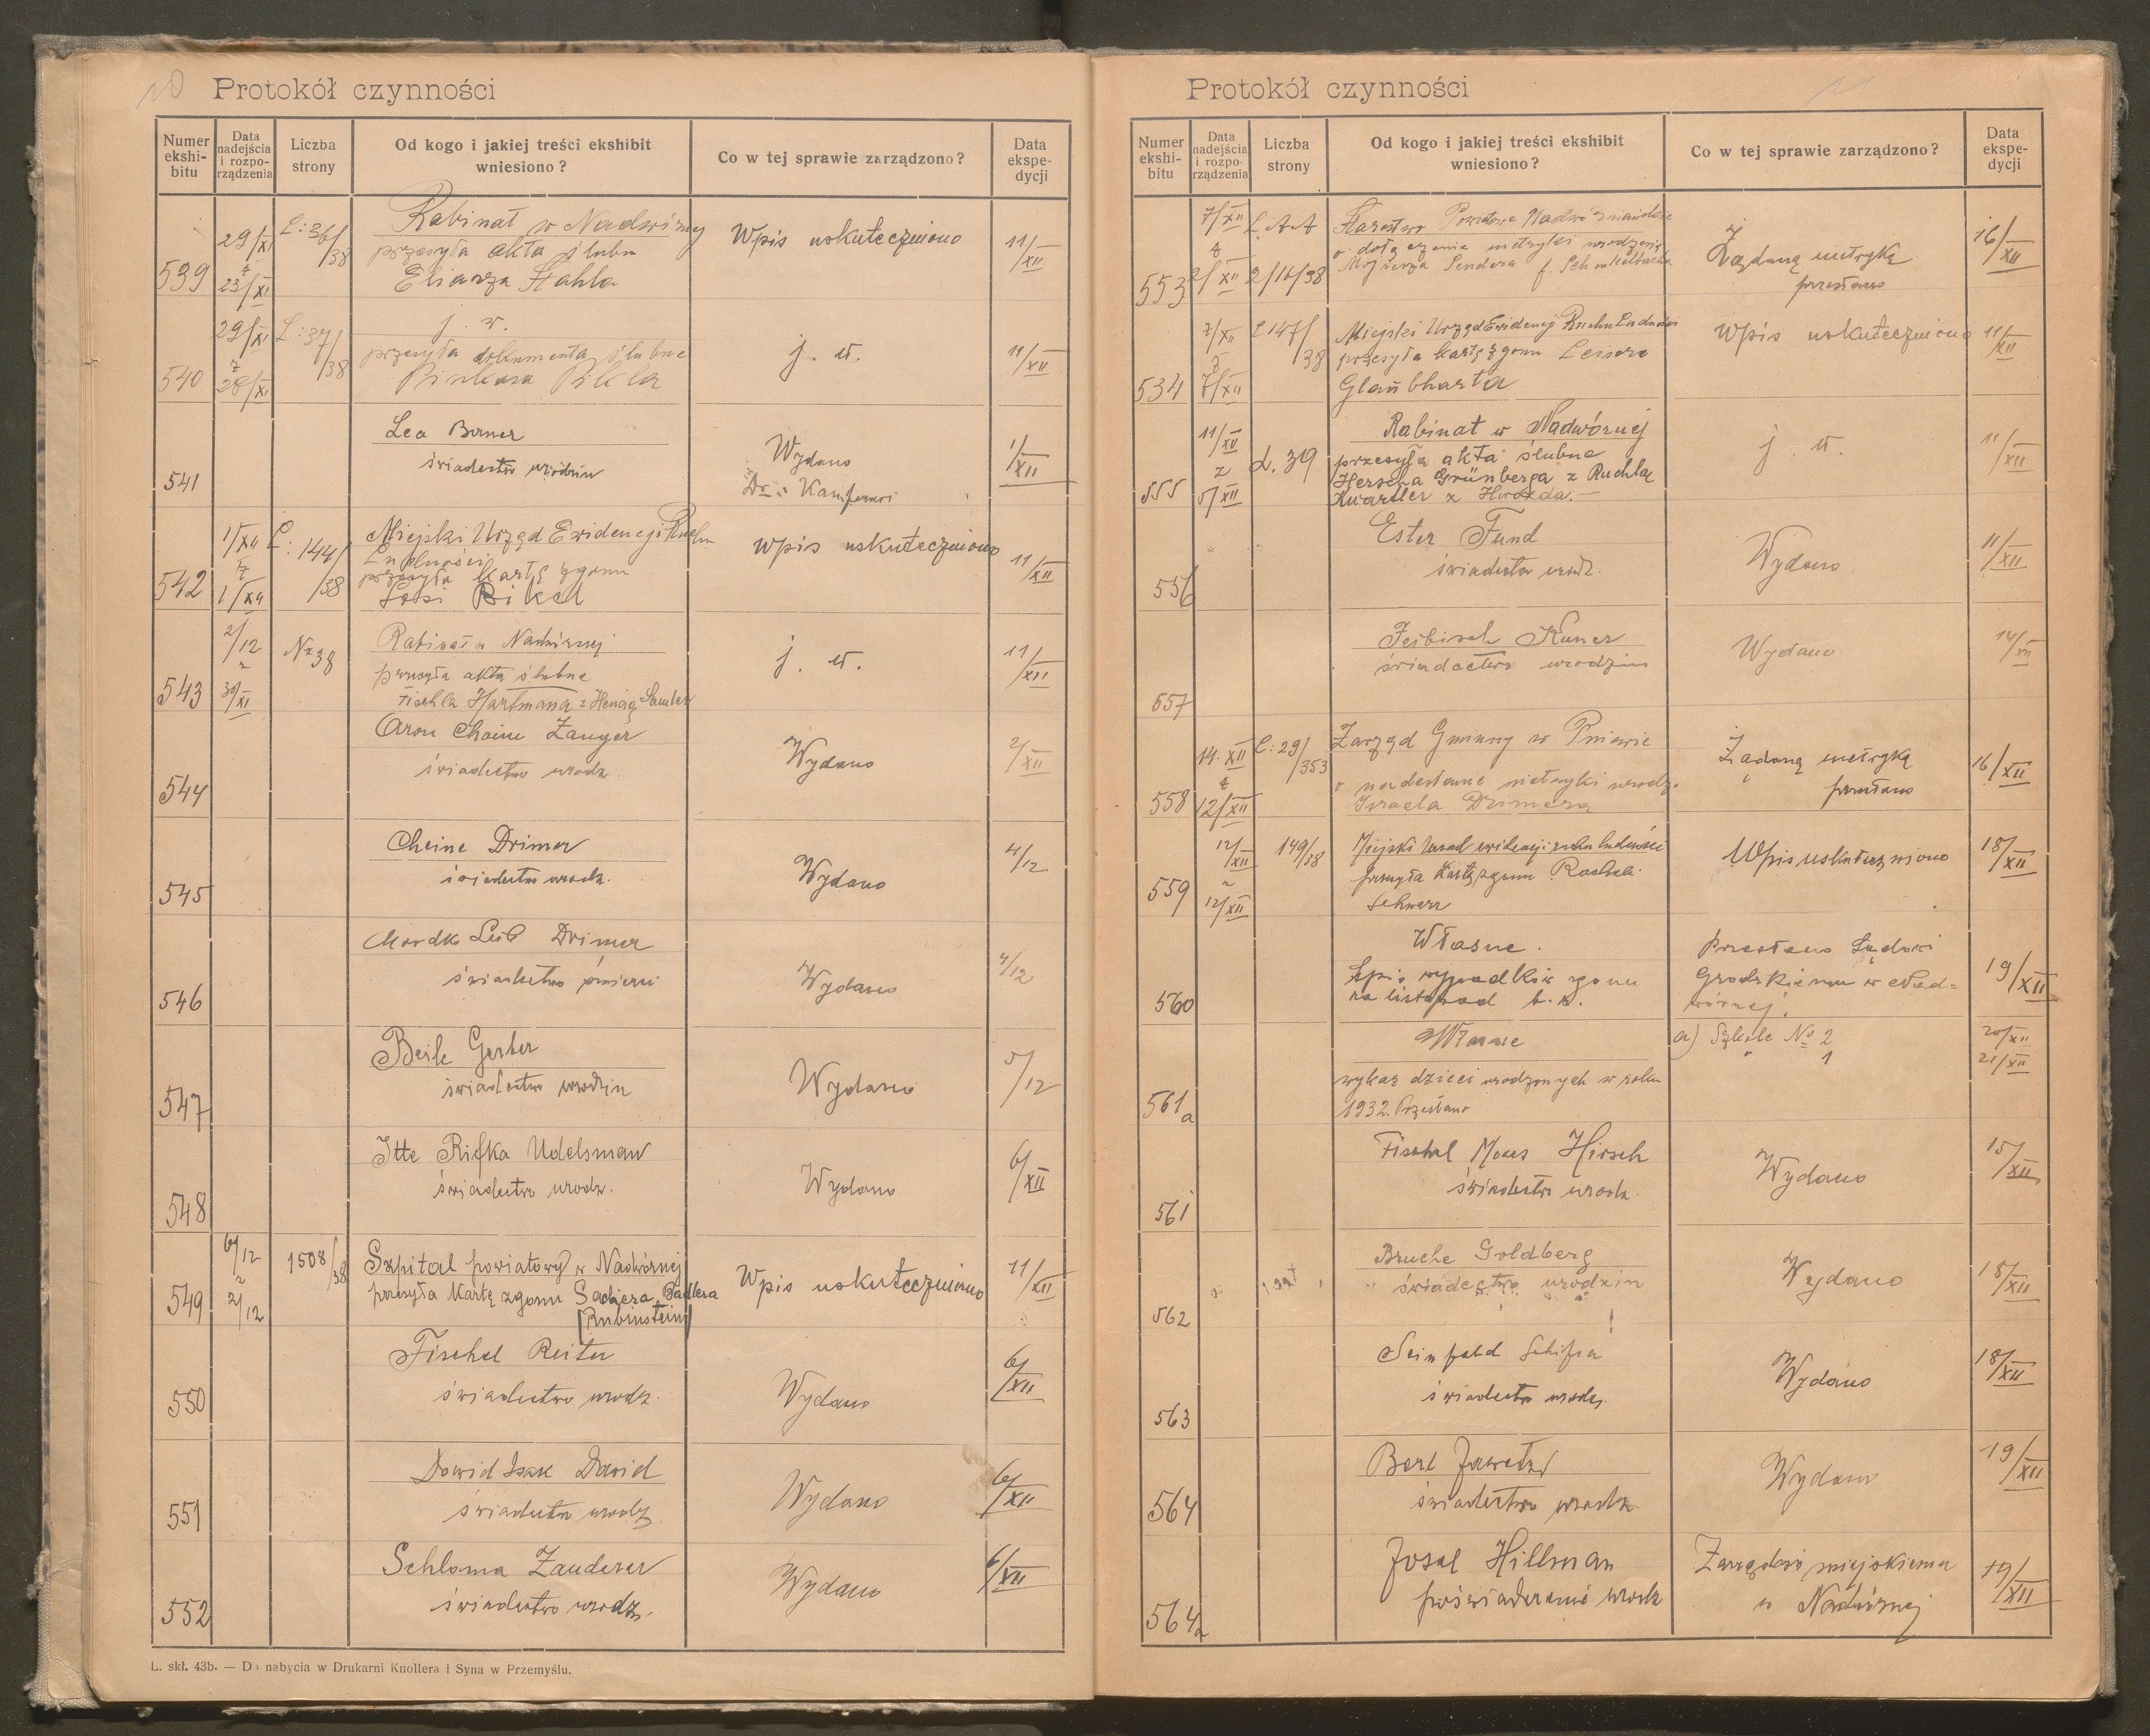 10 Protokół czynności
Numer ekshi- bitu
Data nadejścia i rozpo- rządzenia
Liczba strony
Od kogo i jakiej treści ekshibit wniesiono?
Co w tej sprawie zarządzono?
Data ekspe- dycji
539 29/XI z 23/XI L: 36/38 Rabinat w Nadwórnej
przesyła akta ślubu
Eliasza Stahla
Wpis uskuteczniono 11/XII
540 29/XI z 28/XI L: 37/38 j. w.
przesyła dokumenta ślubne
Pinkasa Pikla
j. w. 11/XII
541 Lea
świadectwo urodzin
Wydano
Dr. 1/XII
542 1/XII z 1/XII L: 144/38 Miejski Urząd Ewidencji Ruchu
Ludności
przesyła kartę zgonu
Bikel
Wpis uskuteczniono 11/XII
543 2/12 z 30/XI No 38 Rabinat w Nadwórnej
przesyła akta ślubne
Fischla Hartmana z
j. w. 11/XII
544 Aron Chaim Zanger
świadectwo urodz.
Wydano 2/XII
545 Cheine Drimer
świadectwo urodz.
Wydano 4/12
546 Mordko Leib Drimer
świadectwo śmierci
Wydano 4/12
547 Beile Gerber
świadectwo urodzin
Wydano 5/12
548 Itte Rifka Udelsman
świadectwo urodz.
Wydano 6/XII
549 6/12 z 2/12 1508/38 Szpital powiatowy w Nadwórnej
przesyła kartę zgonu Sadlera
(Rubinstein)
Wpis uskuteczniono 11/XII
550 Fischel Reiter
świadectwo urodz.
Wydano 6/XII
551 Dawid Isak Dawid
świadectwo urodz.
Wydano 6/XII
552 Schloma Zauderer
świadectwo urodz.
Wydano 6/XII
L. skł. 43b. — Do nabycia w Drukarni Knollera i Syna w Przemyślu.
Protokół czynności
Numer ekshi- bitu
Data nadejścia i rozpo- rządzenia
Liczba strony
Od kogo i jakiej treści ekshibit wniesiono?
Co w tej sprawie zarządzono?
Data ekspe- dycji
553 7/XII z 2/XII Starostwo Powiatowe
o dołączenie metryki urodzenia
Mojżesza Sendera
Żądaną metrykę
przesłano 16/XII
534 7/XII z 7/XII L 147/38 Miejski Urząd Ewidencji Ruchu Ludności
przesyła kartę zgonu Leisera
Glaubharta
Wpis uskuteczniono 11/XII
555 11/XII z 5/XII L. 39 Rabinat w Nadwórnej
przesyła akta ślubne
Herscha Grünberga z Ruchlą
Kwartler z Hwozda.—
j. w. 11/XII
556 Ester Fund
świadectwo urodz.
Wydano 11/XII
557 Feibisch Kuner
świadectwo urodzin
Wydano 14/XII
558 14. XII z 12/XII L: 29/353 Zarząd Gminny w Pniowie
o nadesłanie metryki urodz.
Israela Drimera
Żądaną metrykę
przesłano 16/XII
559 12/XII z 12/XII 149/38 Miejski Urząd ewidencji ruchu ludności
przesyła kartę zgonu Rachel
Schwarz
Wpis uskuteczniono 18/XII
560 Własne.
Spis wypadków zgonu
za listopad b.r.
Przesłano Sądowi
Grodzkiemu w Nad=
wórnej. 19/XII
561a Własne
wykaz dzieci urodzonych w roku
1932. Przesłano
a) Szkole No 2 20/XII
" 1 21/XII
561 Fischel Moses Hirsch
świadectwo urodz.
Wydano 15/XII
562 Bruche Goldberg
świadectwo urodzin
Wydano 18/XII
563 Schifra
świadectwo urodz.
Wydano 18/XII
564 Berl
świadectwo urodz.
Wydano 19/XII
564a Josel Hillman
poświadczenie urodz
Zarządowi miejskiemu
w Nadwórnej 19/XII